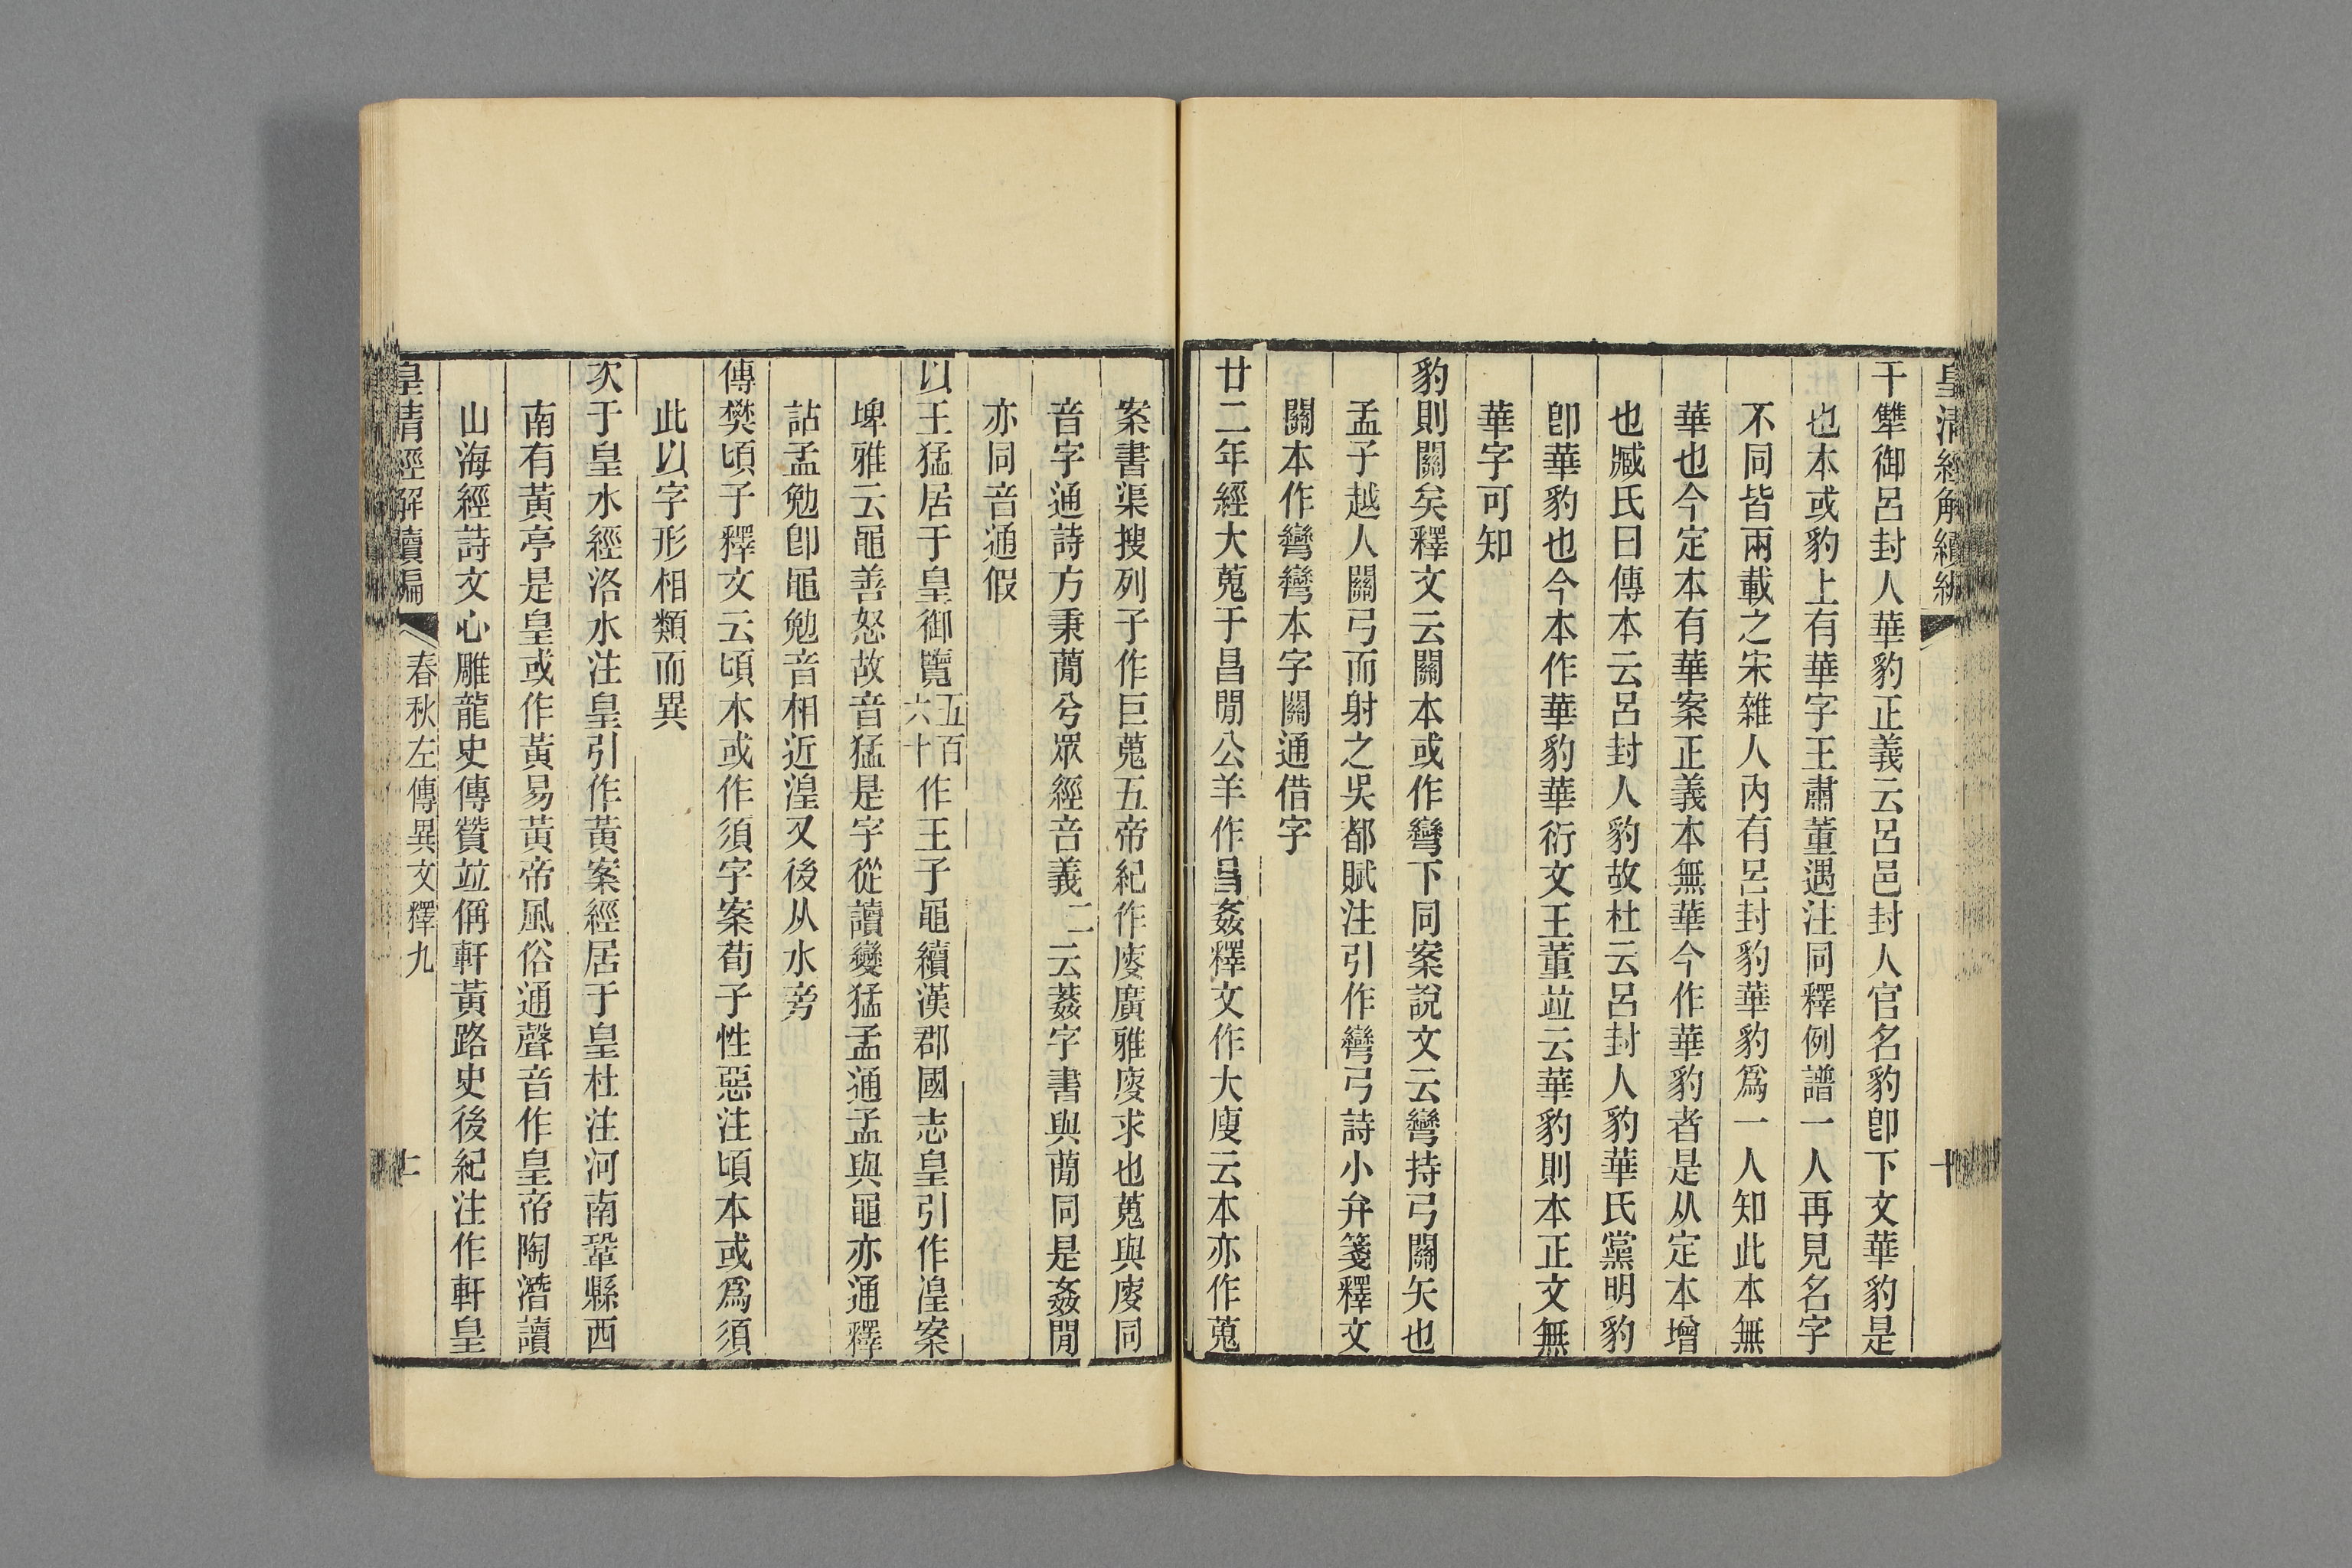 皇清經解續編
十
干犫御呂封人華豹正義云呂邑封人官名豹卽下文華豹是
也本或豹上有華字王肅董遇注同釋例譜一人再見名字
不同皆兩載之宋雜人內有呂封豹華豹爲一人知此本無
華也今定本有華案正義本無華今作華豹者是从定本增
也臧氏曰傳本云呂封人豹故杜云呂封人豹華氏黨明豹
卽華豹也今本作華豹華衍文王董竝云華豹則本正文無
華字可知
豹則關矣釋文云關本或作彎下同案說文云彎持弓關矢也
孟子越人關弓而射之吳都賦注引作彎弓詩小弁箋釋文
關本作彎彎本字關通借字
廿二年經大蒐于昌閒公羊作昌姦釋文作大廋云本亦作蒐
案書渠搜列子作巨蒐五帝紀作廋廣雅廋求也蒐與廋同
音字通詩方秉蕑兮眾經音義二云葌字書與蕑同是姦閒
亦同音通假
以王猛居于皇御覽五百六十作王子黽續漢郡國志皇引作湟案
埤雅云黽善怒故音猛是字從讀變猛孟通孟與黽亦通釋
詁孟勉卽黽勉音相近湟又後从水旁
傳樊頃子釋文云頃本或作須字案荀子性惡注頃本或爲須
此以字形相類而異
次于皇水經洛水注皇引作黃案經居于皇杜注河南鞏縣西
南有黃亭是皇或作黃易黃帝風俗通聲音作皇帝陶潛讀
山海經詩文心雕龍史傳贊竝偁軒黃路史後紀注作軒皇
皇清經解續編
春秋左傳異文釋九